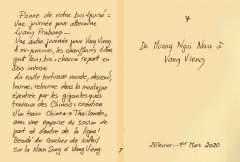 Panne de notre bus figurée :
Une journée pour atteindre
Luang Prabang...
Une autre journée pour Vang Vieng,
à mi-parcours, les chauffeurs échangent
leurs bus - chacun repart en
sens inverse
La route tortueuse monte, descend,
tourne, retourne dans la montagne
éventrée par les gigantesques
travaux des Chinois : création
d'un train Chine → Thaïlande,
avec une emprise de 200m de
part et d'autre de la ligne !
Beauté du coucher de soleil
sur la Nam Song à Vang Vieng.
7
7
De Muang Ngoi Neua à
Vang Vieng
28 février - 1er Mars 2020